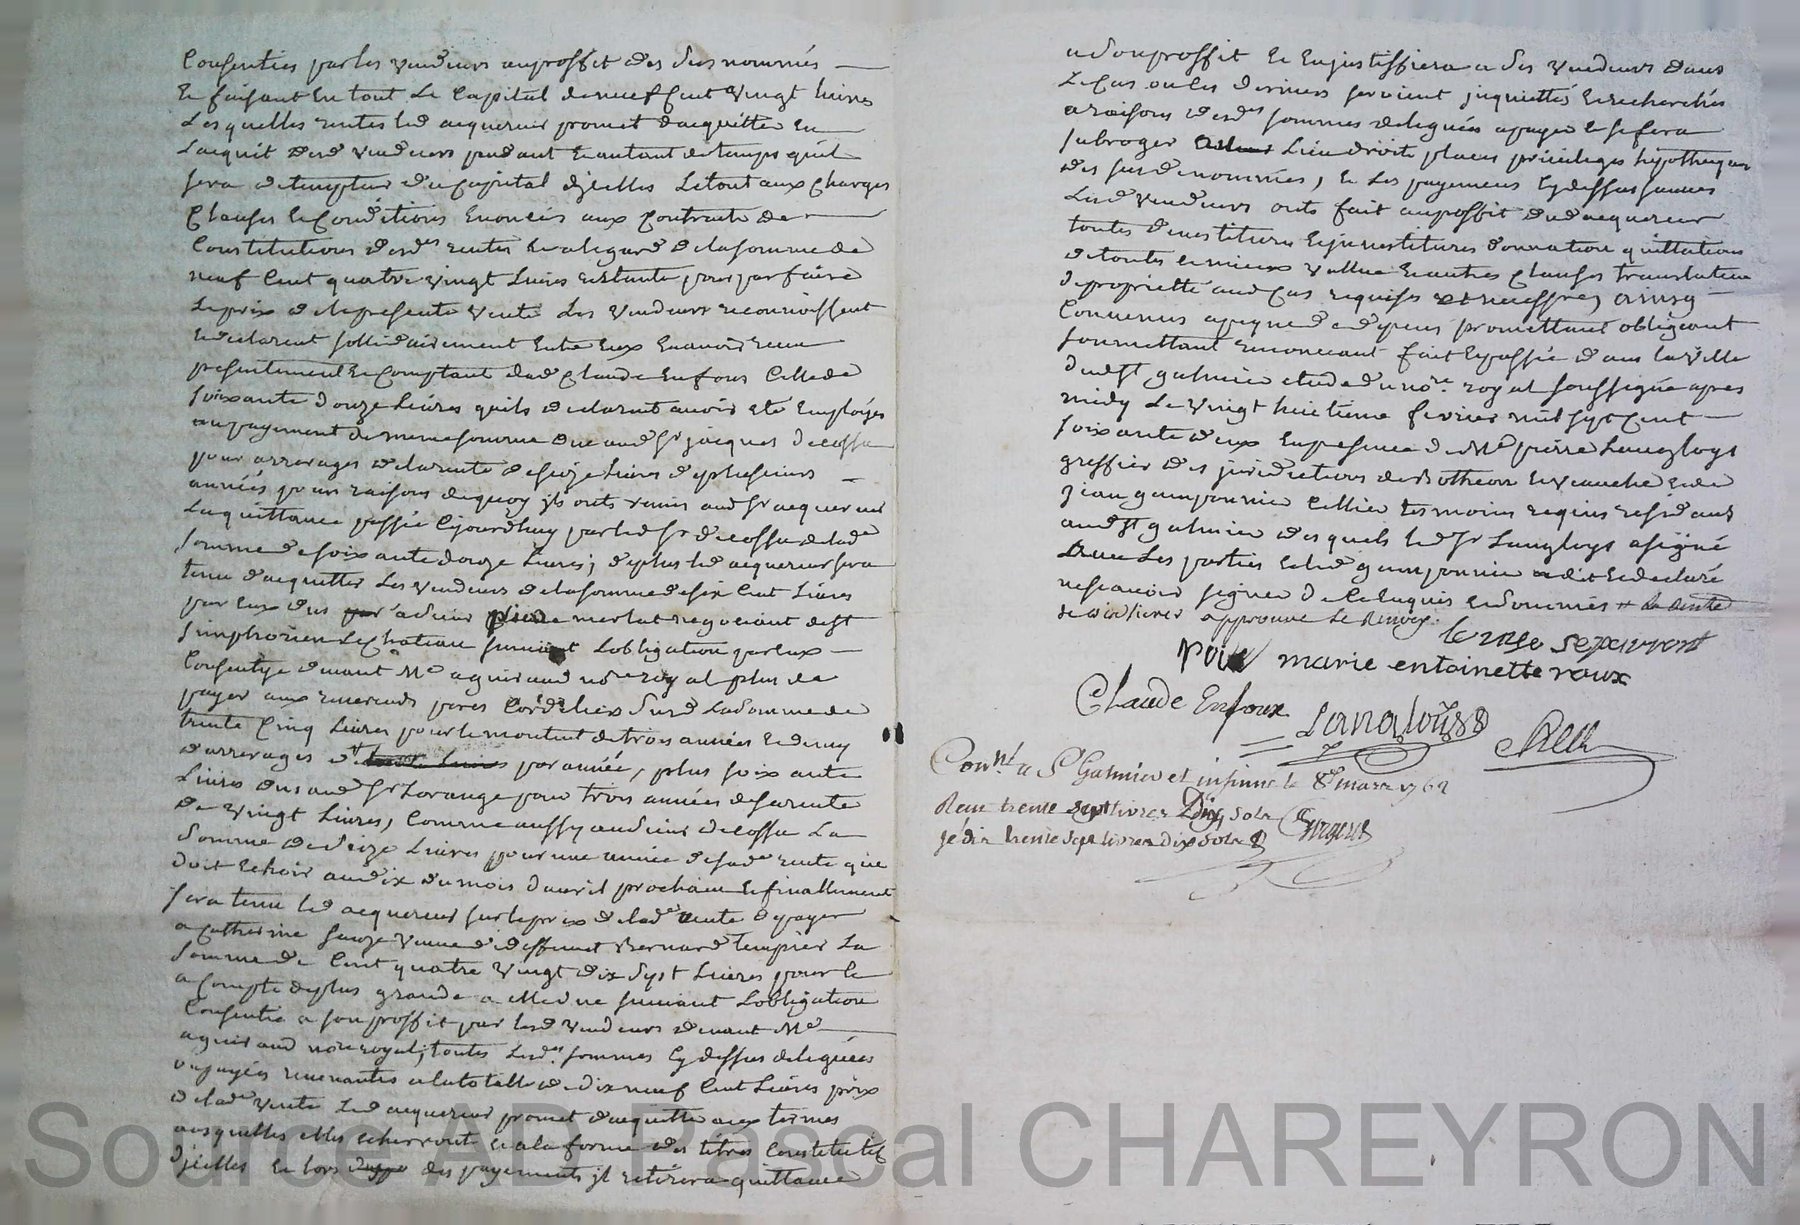 Consenties par les vendeurs au proffit des susnommés
Et faisant En tout Le Capital de neuf Cent vingt livres
Lesquelles rentes led acquereur promet d'acquitter En
Lacquit desd vendeurs pendant Et autant de temps quil
sera detempteur du Capital djcelles Le tout aux Charges
Clauses Et Conditions Enoncés aux Contracts de
Constitutions desd.es rentes Et a legard de la somme de
neuf Cent quatre vingt Livres restante pour parfaire
Le prix de la presente vente Les vendeurs reconnoissent
Et declarent sollidairement Entre Eux En avoir receu
presentement Et Comptant dud Claude Enfoux Celle de
soixante douze Livres quils declarent avoir Eté Employés
au payement de meme somme due aud Sr jacques decossa
pour arrerages de la rente de seize Livres de plusieurs
années pour raisons de quoy jls onts remis aud Sr acquereur
La quittance passée Cejourdhuy par led Sr decossa de lad.e
somme de soixante douze Livres; de plus led acquereur sera
tenu d'acquitter Les vendeurs de la somme de six Cent Livres
par Eux dus a sieur merlat negociant de St
simphorien Le Chateau suivant Lobligation par Eux
Consentye devant Me aguiraud no.re royal plus de
payer aux reverends peres Cordeliers Susd La somme de
trente Cinq Livres pour le montant de trois années Et demy
d'arrerages par année, plus soixante
Livres dus aud Sr Lorange pour trois années de sa rente
de vingt Livres, Comme aussy aud sieur decossa La
somme de seize Livres pour une année de sad.e rente que
doit Echoir au dix du mois d'avril prochain Et finallement
sera tenu led acquereur sur le prix de lad.e vente de payer
a Catherine veuve de deffunt Bernard Tempier La
somme de Cent quatre vingt dix sept Livres pour le
a Compte de plus grande a Elle due suivant Lobligation
Consentie a son proffit par lesd vendeurs devant Me
aguiraud no.re royal, toutes Lesd.es sommes Cy dessus deleguées
ou payées revenantes a la totalle de dix neuf Cent Livres prix
de lad.e vente Led acquereur promet d'acquitter aux termes
ausquelles Elles Echerront Et a la forme des titres Constitutifs
djcelles Et lors des payements jl retirera quittance
a son proffit Et En justiffiera a ses vendeurs dans
Le Cas ou les derniers seroient jnquiettés Et recherchés
a raisons desd.es sommes deleguées a payer Et se fera
subroger Lieu droits places privileges hypotheques
des susdenommés, Et Les payements Cy dessus
Lesd vendeurs onts fait au proffit dud acquereur
toutes devestitures Et jnvestitures donnation quittations
de toute Et mieux vallue Et autres Clauses translatives
de proprietté aud Cas requises et necessres ainsy
Convenus a peyne promettant obligeant
soumettant renonceant fait Et passé dans la ville
dud St galmier etude du no.re royal soussigné apres
midy Le vingt huictieme fevrier mil sept Cent
soixante deux En presence de Me pierre Langloys
greffier des juridictions de Botheon Et veauche Et de
jean gumponnier Cellier temoins requis residants
aud St galmier desquels led Sr Langloys a signé
avec Les parties Et led gumponnier a dit Et declaré
ne scavoir signer de Ce Enquis Et sommés
approuve Le Renvoy
marie entoinette roux
Claude Enfoux Langloys
Con.lé a St Galmier et insinué le 8e mars 1762
Reçu trente sept livres Dix sols
je dis trente sept livres dix sols
Source AD Pascal CHAREYRON